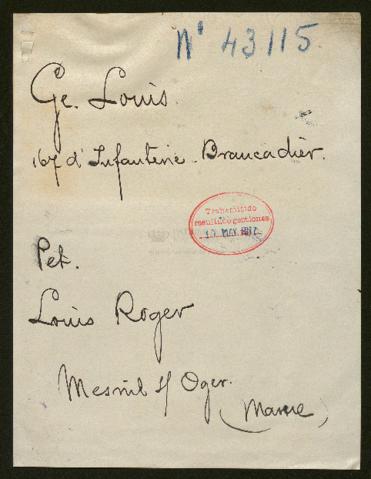 Nº 43115
Ge. Louis.
167 d'Infanterie. Brancadier.
Transmitido
resultado gestiones
10 MAY 1917
Pet.
Louis Roger
Mesnil s/ Oger.
(Marne)